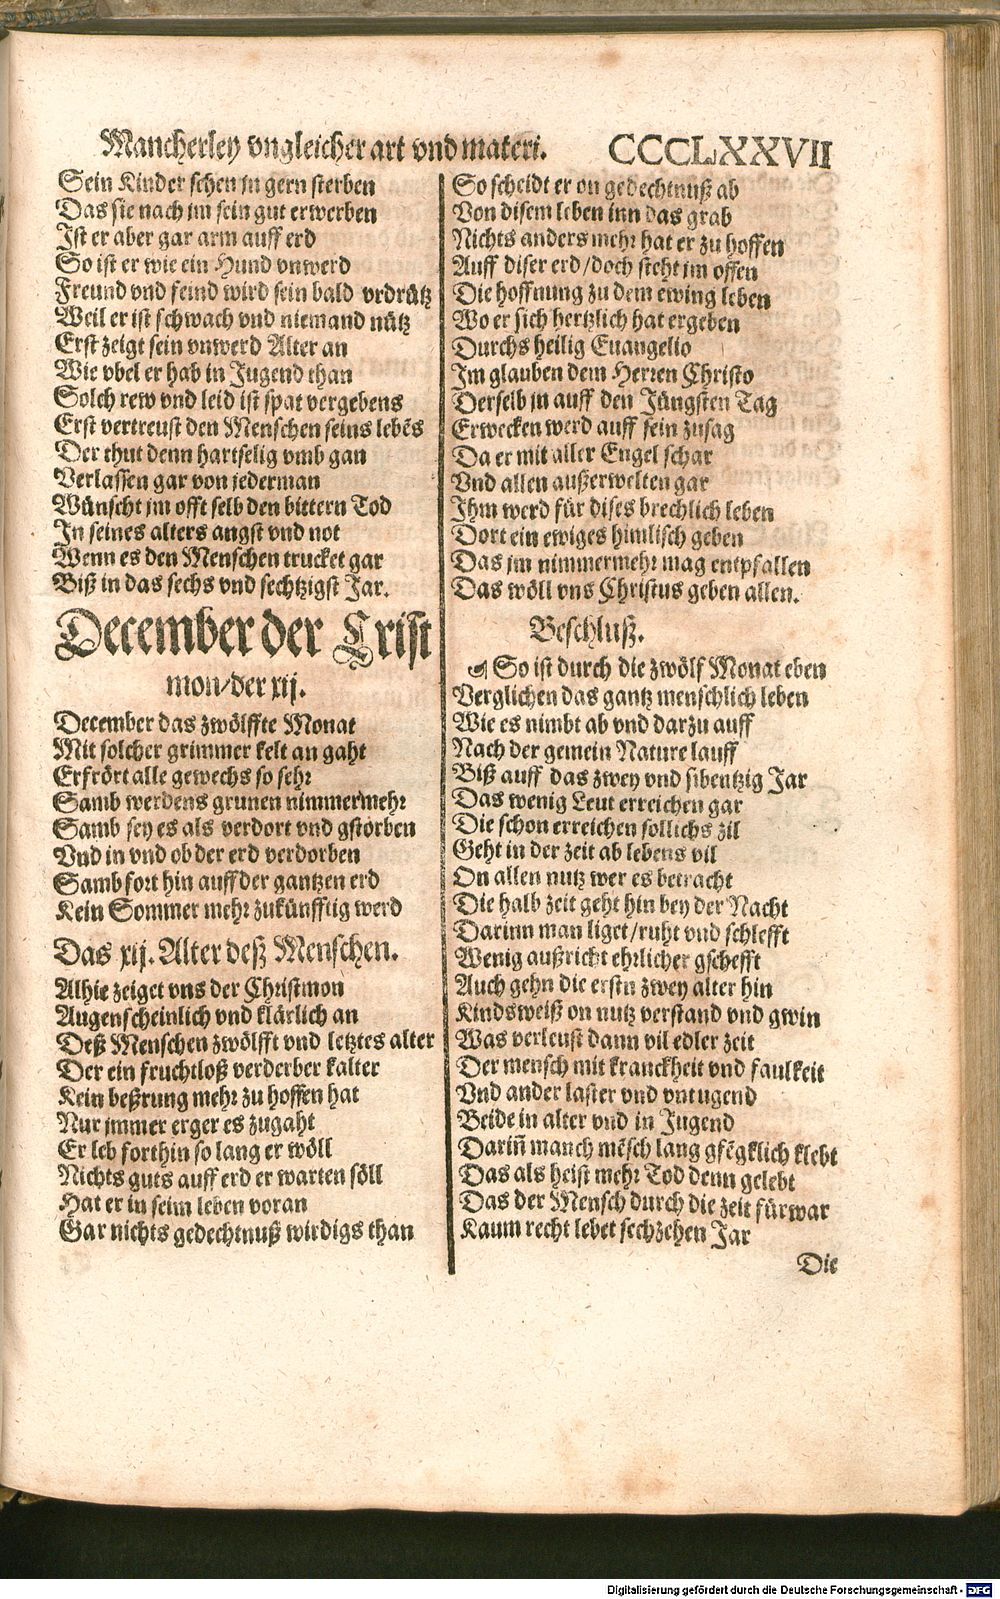 Mancherley vngleicher art vnd materi. CCCLXXVII
Sein Kinder sehen jn gern sterben
Das sie nach jm sein gut erwerben
Ist er aber gar arm auff erd
So ist er wie ein Hund vnwerd
Freund vnd feind wird sein bald vrdrütz
Weil er ist schwach vnd niemand nütz
Erst zeigt sein vnwerd Alter an
Wie vbel er hab in Jugend than
Solch rew vnd leid ist spat vergebens
Erst vertreust den Menschen seins lebēs
Der thut denn hartselig vmb gan
Verlassen gar von jederman
Wünscht jm offt selb den bittern Tod
In seines alters angst vnd not
Wenn es den Menschen trucket gar
Biß in das sechs vnd sechtzigst Jar.
December der Crist
mon/der xij.
December das zwölffte Monat
Mit solcher grimmer kelt an gaht
Erfrört alle gewechs so sehr
Samb werdens grunen nimmermehr
Samb sey es als verdort vnd gstorben
Vnd in vnd ob der erd verdorben
Samb fort hin auff der gantzen erd
Kein Sommer mehr zukünfftig werd
Das xij. Alter deß Menschen.
Alhie zeiget vns der Christmon
Augenscheinlich vnd klärlich an
Deß Menschen zwölfft vnd letztes alter
Der ein fruchtloß verderber kalter
Kein beßrung mehr zu hoffen hat
Nur jmmer erger es zugaht
Er leb forthin so lang er wöll
Nichts guts auff erd er warten söll
Hat er in seim leben voran
Gar nichts gedechtnuß wirdigs than
So scheidt er on gedechtnuß ab
Von disem leben inn das grab
Nichts anders mehr hat er zu hoffen
Auff diser erd/doch steht jm offen
Die hoffnung zu dem ewing leben
Wo er sich hertzlich hat ergeben
Durchs heilig Euangelio
Im glauben dem Herren Christo
Derselb jn auff den Jüngsten Tag
Erwecken werd auff sein zusag
Da er mit aller Engel schar
Vnd allen außerwelten gar
Ihm werd für dises brechlich leben
Dort ein ewiges himlisch geben
Das jm nimmermehr mag entpfallen
Das wöll vns Christus geben allen.
Beschluß.
☙ So ist durch die zwölf Monat eben
Verglichen das gantz menschlich leben
Wie es nimbt ab vnd darzu auff
Nach der gemein Nature lauff
Biß auff das zwey vnd sibentzig Jar
Das wenig Leut erreichen gar
Die schon erreichen sollichs zil
Geht in der zeit ab lebens vil
On allen nutz wer es betracht
Die halb zeit geht hin bey der Nacht
Darinn man liget/ruht vnd schlefft
Wenig außricht ehrlicher gschefft
Auch gehn die erstn zwey alter hin
Kindsweiß on nutz verstand vnd gwin
Was verleust dann vil edler zeit
Der mensch mit kranckheit vnd faulkeit
Vnd ander laster vnd vntugend
Beide in alter vnd in Jugend
Dariñ manch mēsch lang gfēgklich klebt
Das als heist mehr Tod denn gelebt
Das der Mensch durch die zeit fürwar
Kaum recht lebet sechzehen Jar
Die
Digitalisierung gefördert durch die Deutsche Forschungsgemeinschaft - DFG